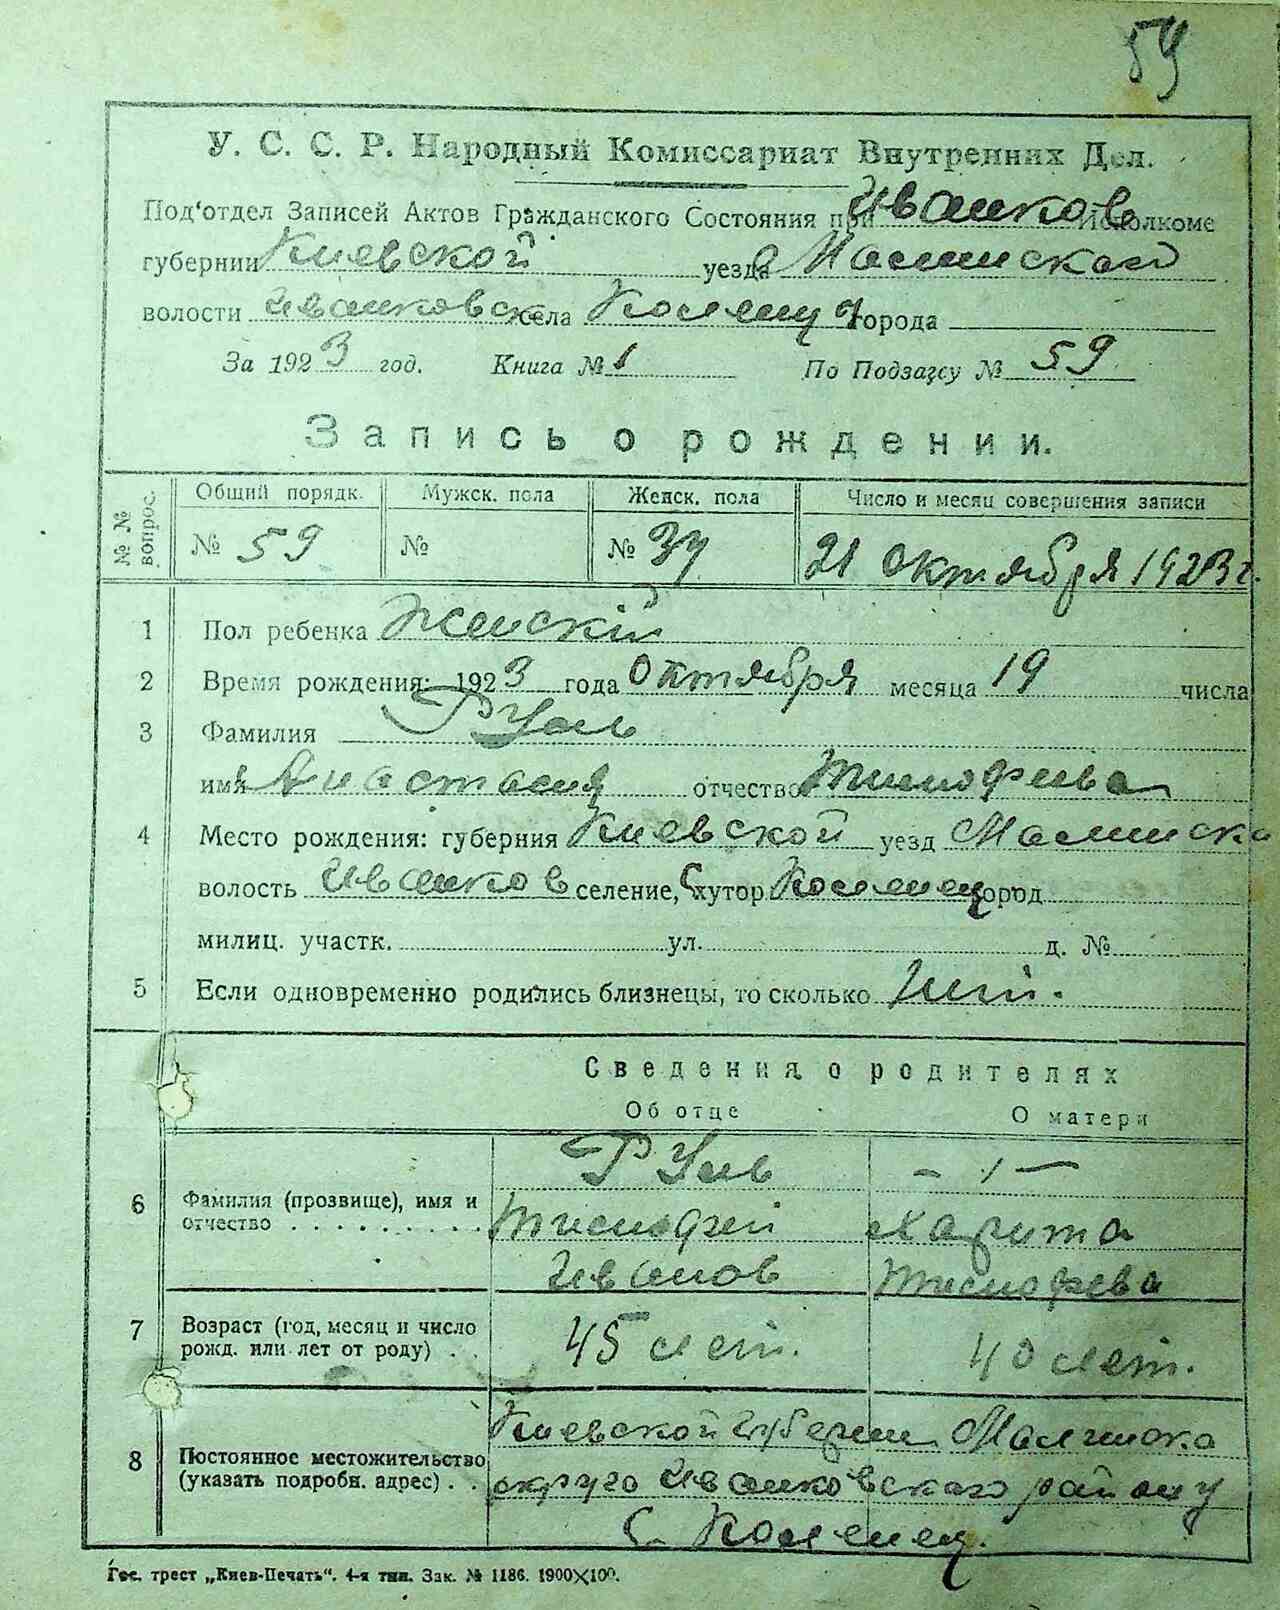 59
У. С. С. Р. Народный Комиссариат Внутренних Дел.
Под'отдел Записей Актов Гражданского Состояния при Иванков Исполкоме
губернии Киевской уезда Малинской
волости Иванковск села Коленц города
За 1923 год. Книга № 1 По Подзагсу № 59
Запись о рождении.
№ № вопрос. Общий порядк. Мужск. пола Женск. пола Число и месяц совершения записи
№ 59 № № 37 21 Октября 1923 г.
1 Пол ребенка Женскій
2 Время рождения: 1923 года Октября месяца 19 числа
3 Фамилия
имя Анастасия отчество Тимофеева
4 Место рождения: губерния Киевской уезд Малинска
волость Иванков селение, хутор С Коленец город
милиц. участк. ул. д. №
5 Если одновременно родились близнецы, то сколько Нет.
Сведения о родителях
Об отце О матери
6 Фамилия (прозвище), имя и
отчество
Тимофей Харита
Иванов Тимофева
7 Возраст (год, месяц и число
рожд. или лет от роду) 45 лет. 40 лет.
Киевской губернии Малинска
8 Постоянное местожительство
(указать подробн. адрес) округа Иванковскаго району
С. Коленец.
Гос. трест „Киев-Печать“. 4-я тип. Зак. № 1186. 1900×100.